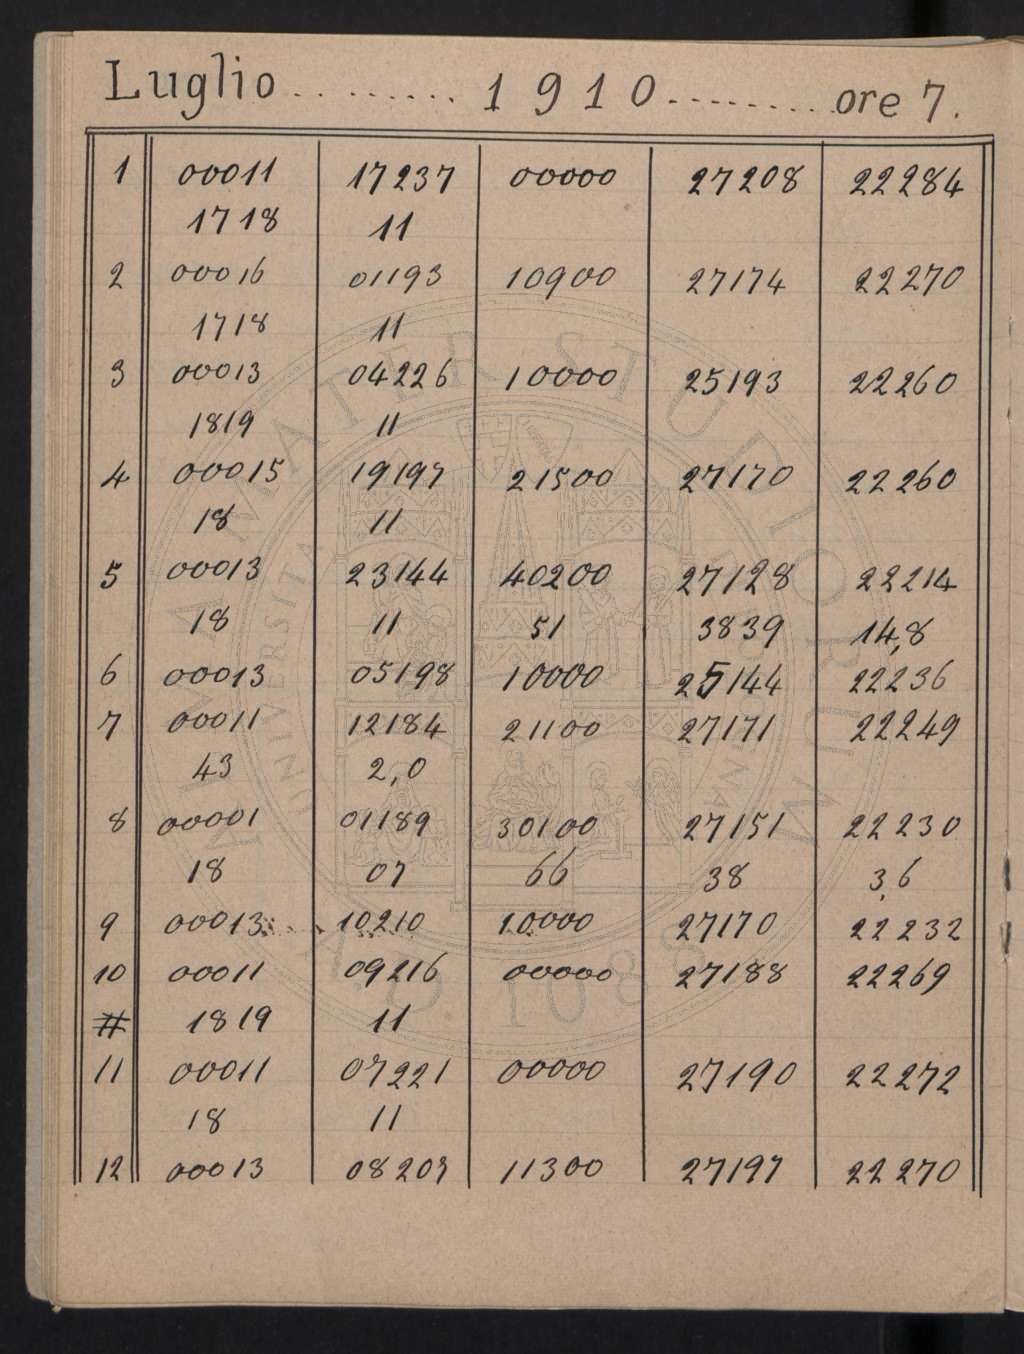 Luglio ......... 1910 ........ ore 7.
1 00011 17237 00000 27208 22284
1718 11
2 00016 01193 10900 27174 22270
1718 11
3 00013 04226 10000 25193 22260
1819 11
4 00015 19197 21500 27170 22260
18 11
5 00013 23144 40200 27128 22214
18 11 51 3839 14,8
6 00013 05198 10000 25144 22236
7 00011 12184 21100 27171 22249
43 2,0
8 00001 01189 30100 27151 22230
18 07 66 38 3,6
9 00013 10210 10000 27170 22232
10 00011 09216 00000 27188 22269
1819 11
11 00011 07221 00000 27190 22272
18 11
12 00013 08207 11300 27197 22270
ALMA MATER STUDIORUM
UNIVERSITÀ DI BOLOGNA
A.D. 1088